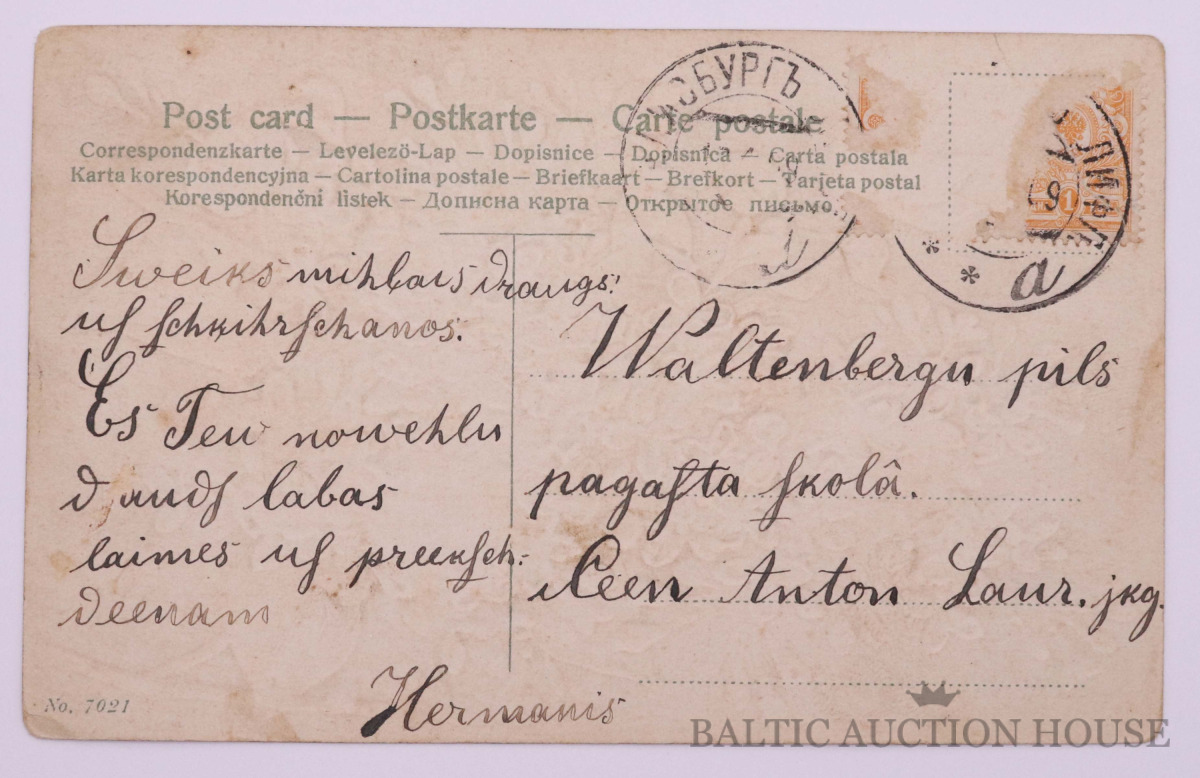 Post card — Postkarte — Carte postale
Correspondenzkarte — Levelező-Lap — Dopisnice — Dopisnica — Carta postala
Karta korespondencyjna — Cartolina postale — Briefkaart — Brefkort — Tarjeta postal
Korespondenčni listek — Дописна карта — Открытое письмо
ОБУРГЪ
ЛИФЛ
* *
a
Sweiks mihlais draugs!
uſ ſchkihrſchanos.
Es Tew nowehlu
dauds labas
laimes uſ preekſch-
deenam
Hermanis
Waltenbergu pils
pagaſta ſkolâ.
Anton Laur. jkg.
No. 7021
BALTIC AUCTION HOUSE